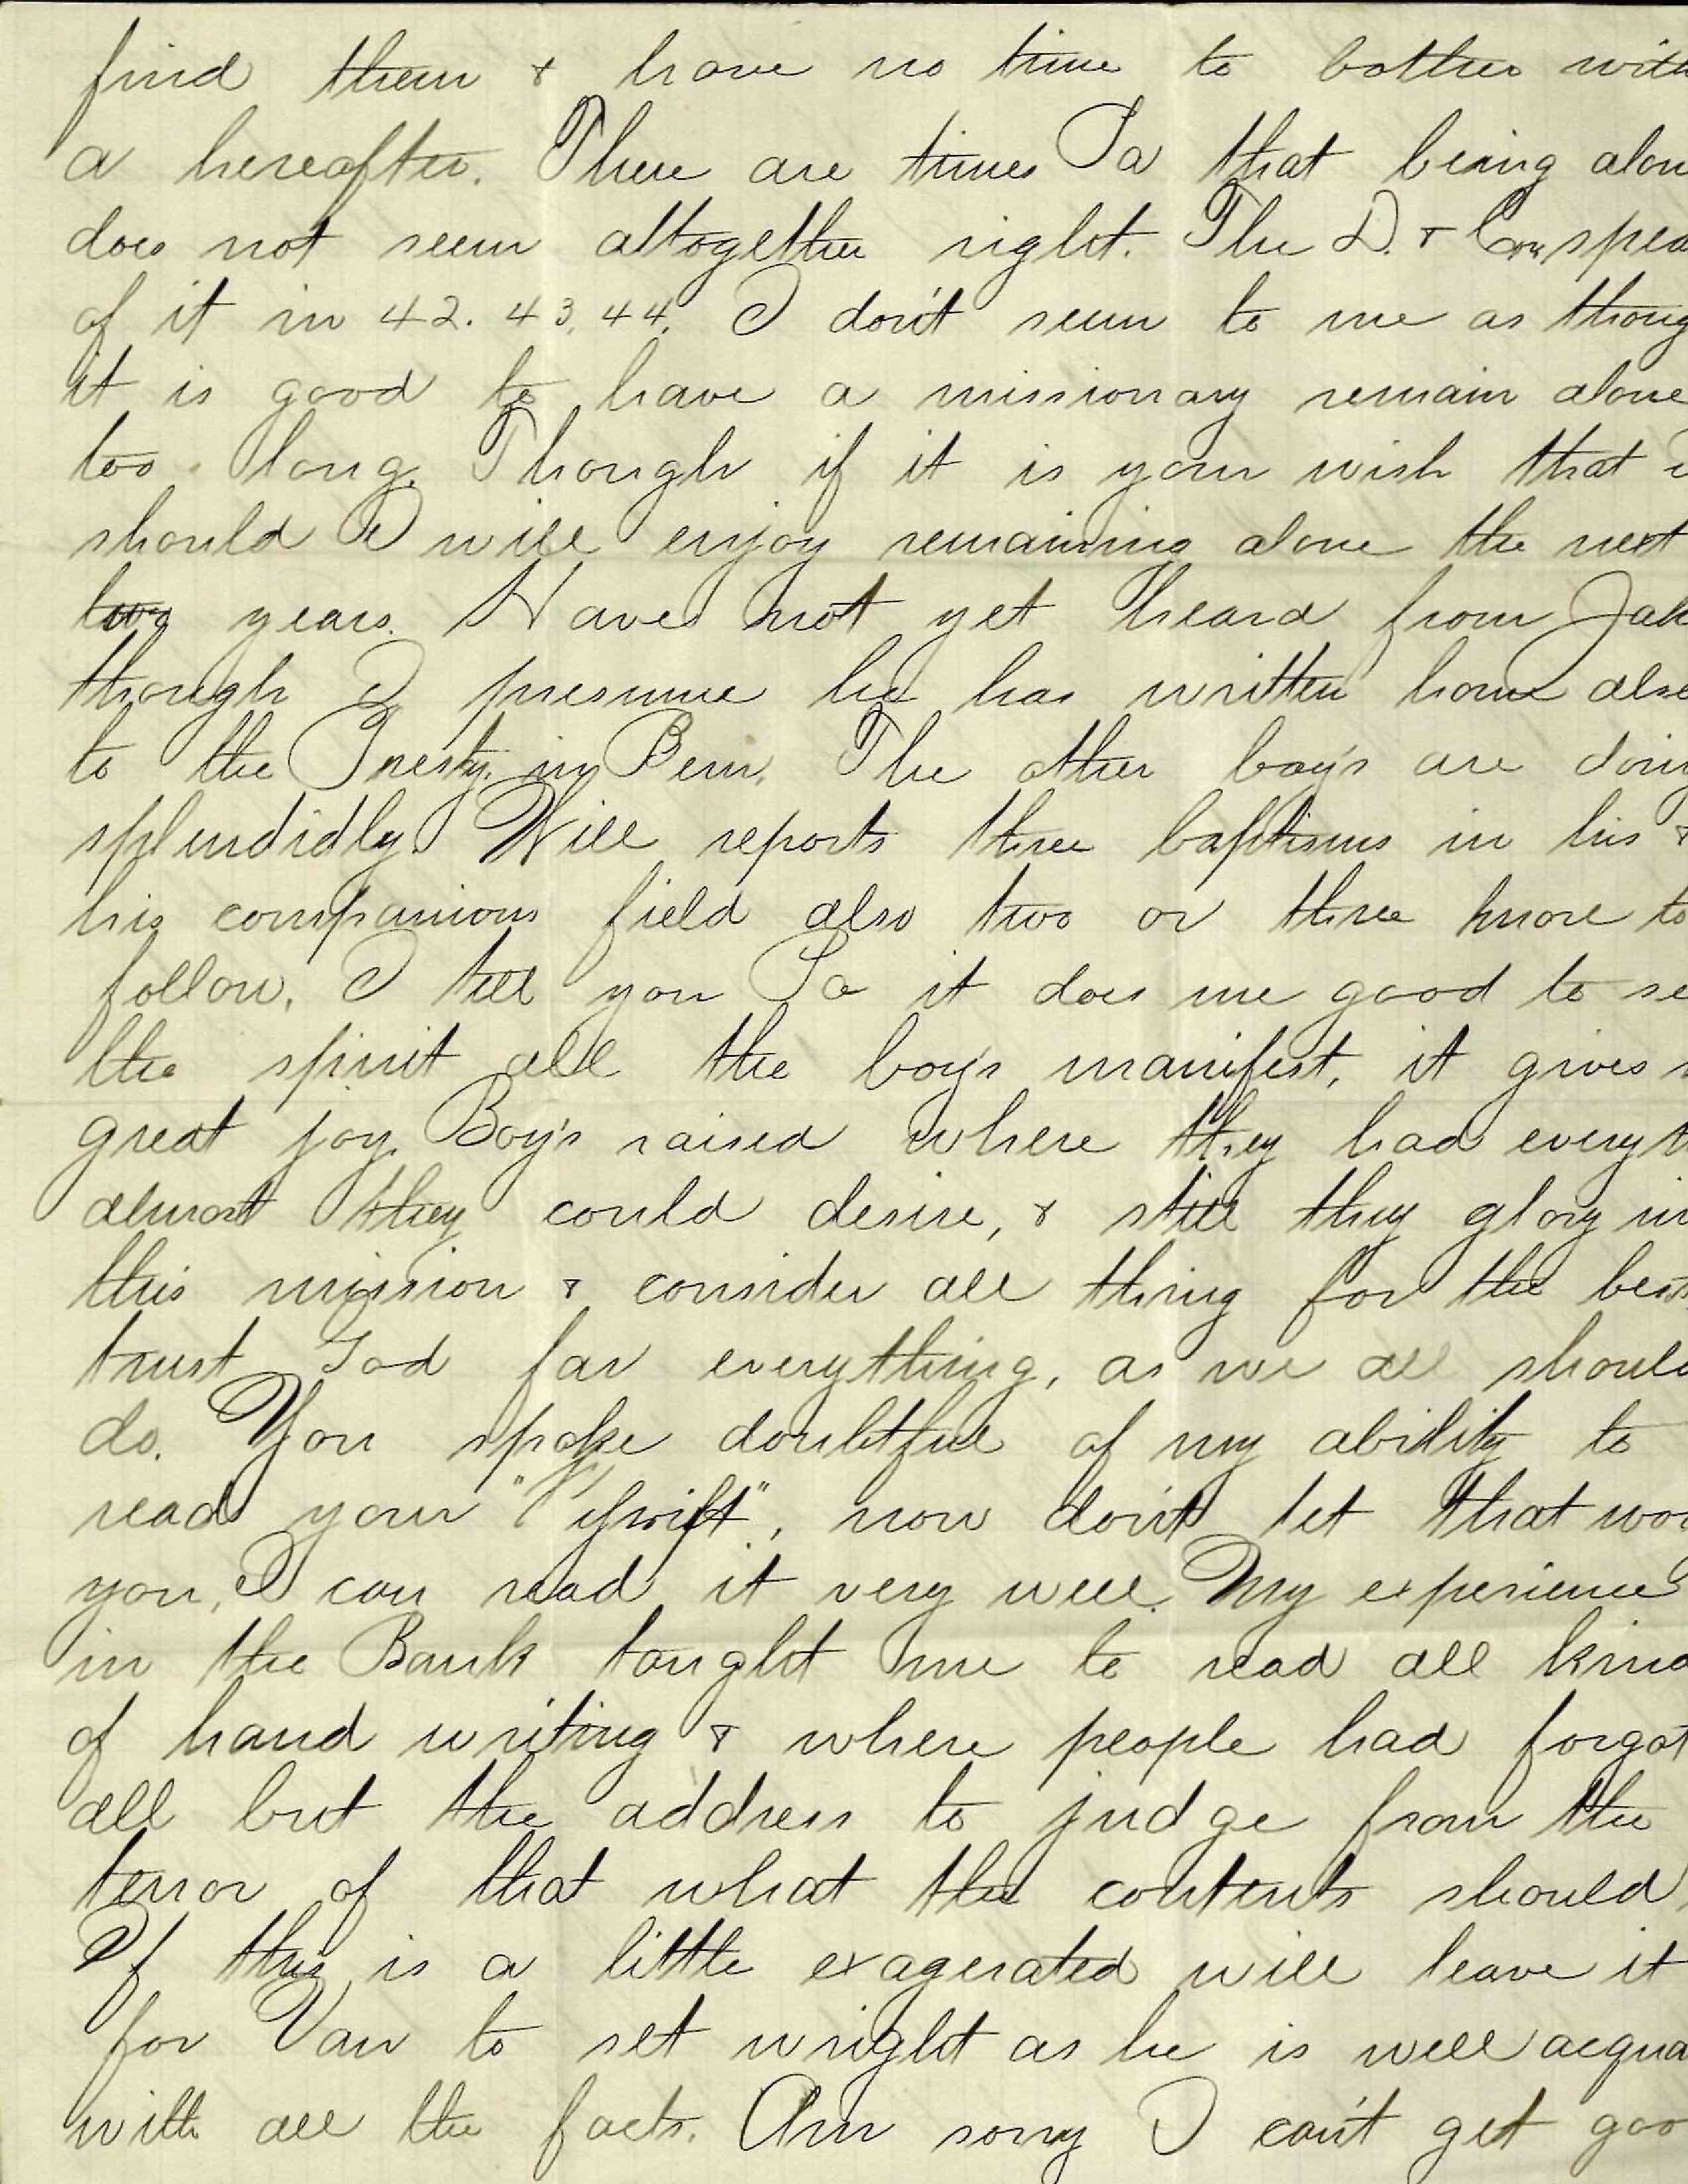 find them & have no time to bother with
a hereafter. There are times Pa that being alon
does not seem altogether right. The D. & Con spea
of it in 42. 43, 44. I don't seem to me as thoug
it is good to have a missionary remain alone
too long. Though if it is your wish that I
should I will enjoy remaining alone the next
two years. Have not yet heard from Jak
though I presume he has written home also
to the in Bern. The other boy's are doing
splendidly. Will reports three baptisms in his &
his companions field also two or three more to
follow. I tell you Pa it does me good to se
the spirit all the boy's manifest, it gives m
great joy. Boy's raised where they had everyt
almost they could desire, & still they glory in
this mission & consider all thing for the best
trust God for everything, as we all should
do. You spoke doubtful of my ability to
read your " ", now don't let that wor
you, I can read it very well. My experience
in the Bank tought me to read all kind
of hand writing & where people had forgot
all but the address to judge from the
tenor of that what the contents should
If this is a little exagerated will leave it
for Van to set wright as he is well acqua
with all the facts. Am sorry I can't get goo